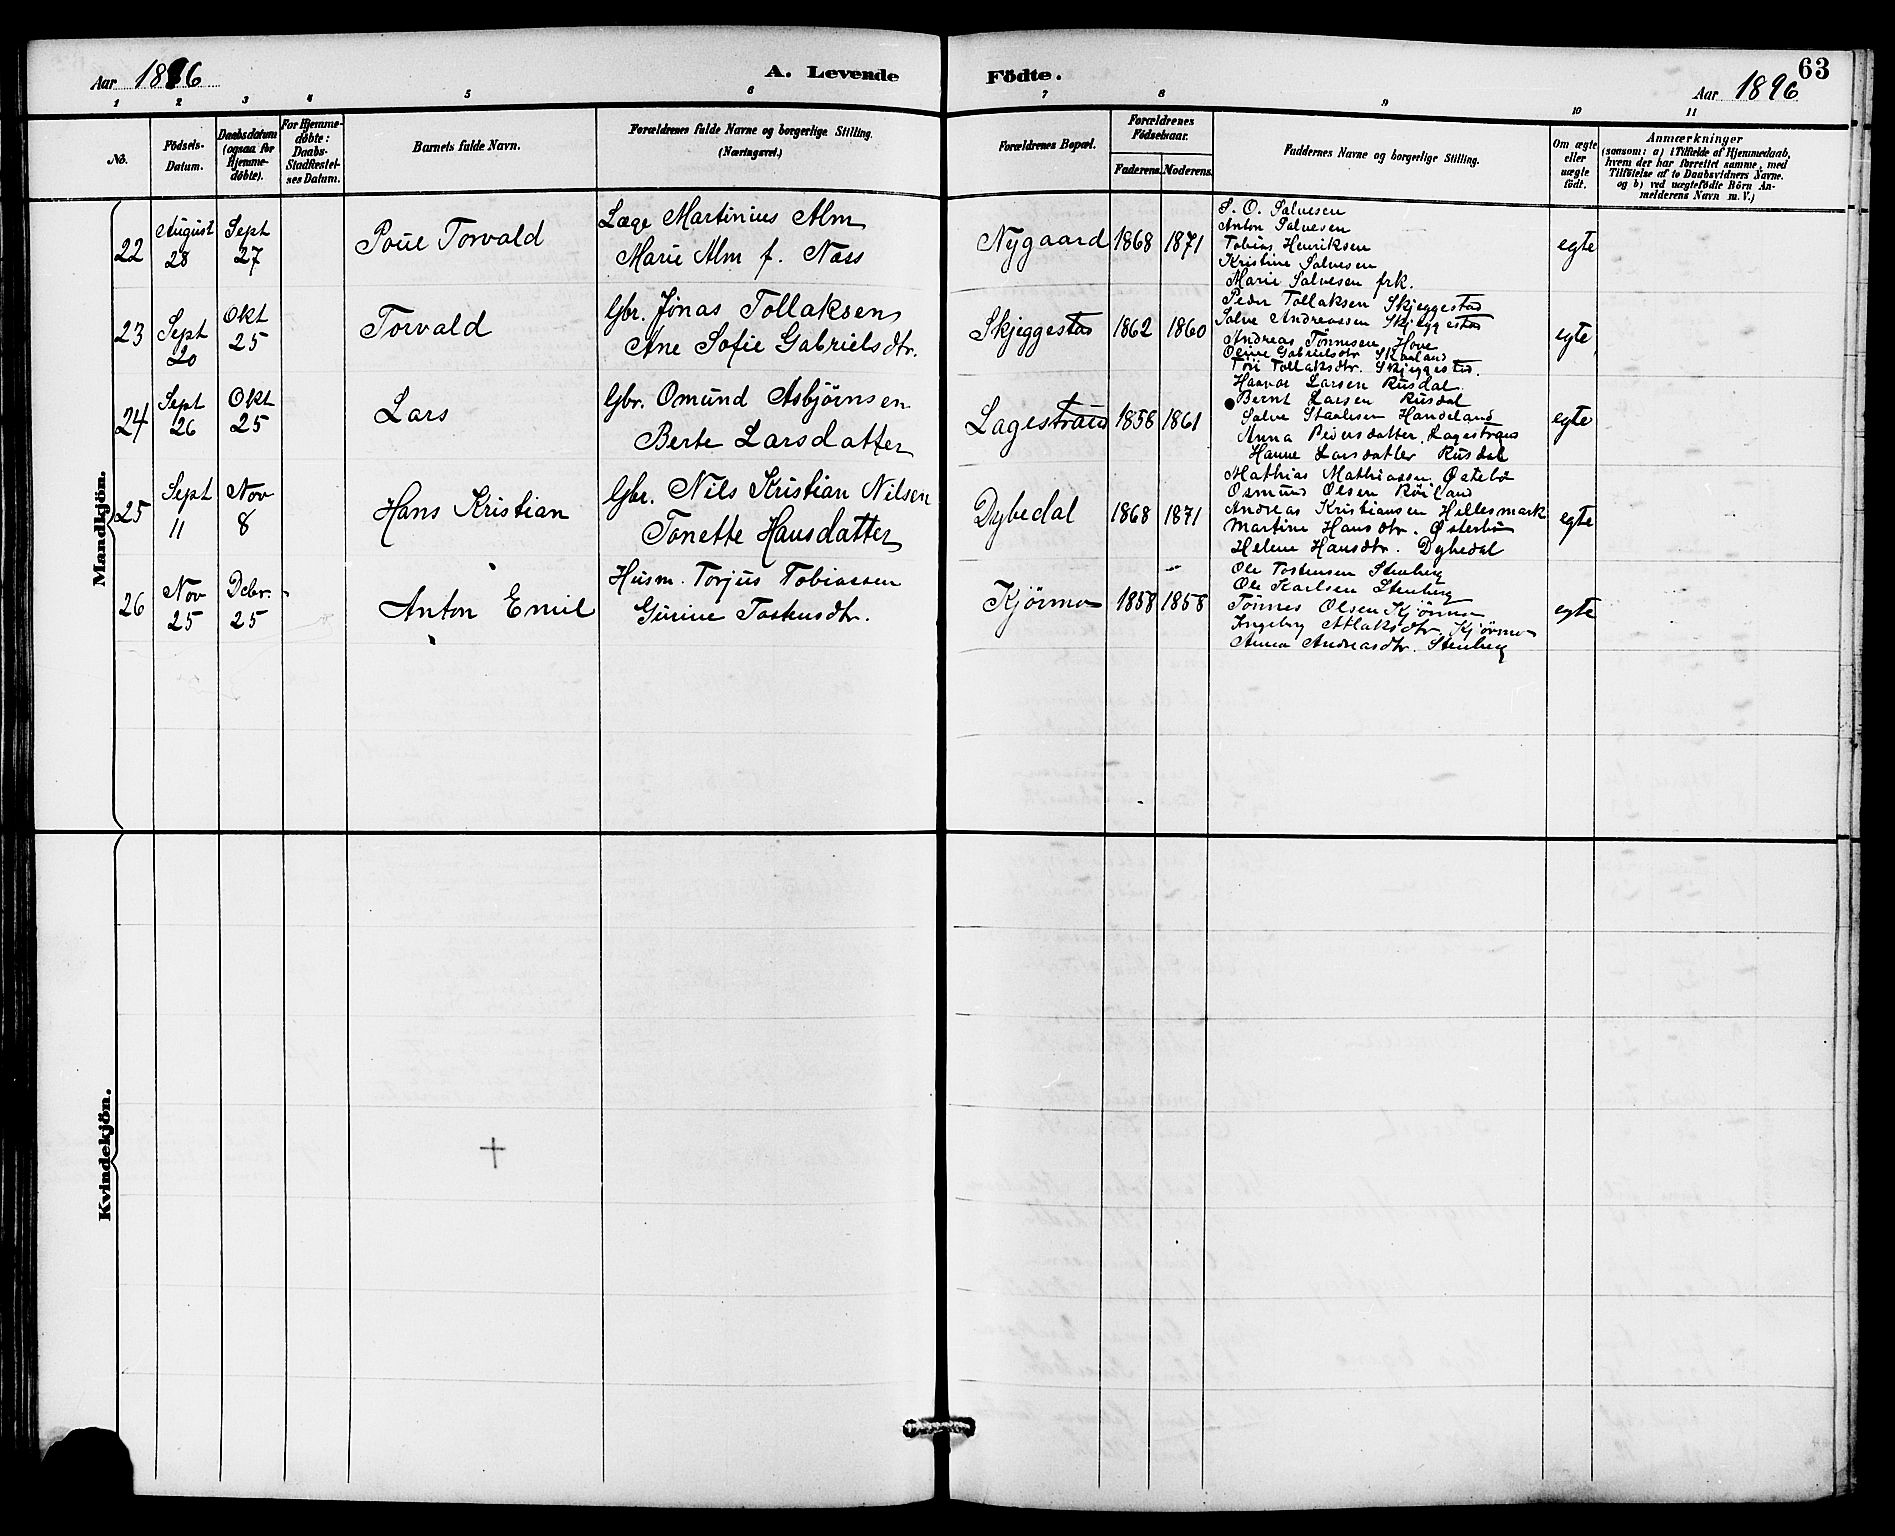 Aar 1896 A. Levende Födte. Aar 1896 63
1 2 3 4 5 6 7 8 9 10 11
No. Födsels-Datum. Daabsdatum (ogsaa for Hjemmedöbte). For Hjemmedöbte: Daabs-Stadfæstelses Datum. Barnets fulde Navn. Forældrenes fulde Navne og borgerlige Stilling. (Næringsvei.) Forældrenes Bopæl. Forældrenes Födselsaar. Faderens. Moderens. Faddernes Navne og borgerlige Stilling. Om ægte eller uægte födt. Anmærkninger (saasom: a) i Tilfælde af Hjemmedaab, hvem der har forrettet samme, med Tilföielse af to Daabsvidners Navne. og b) ved uægtefödte Börn Anmelderens Navn m. V.)
Mandkjön.
22 August 28 Sept 27 Poue Torvald Læge Martinius Alm
Marie Alm f. Næss
Nygaard 1868 1871
S. O. Salvesen
Anton Salvesen
Tobias Henriksen
Kristine Salvesen
Marie Salvesen frk.
egte
23 Sept 20 Okt 25 Torvald Gbr. Jønas Tollaksen
Ane Sofie Gabrielsdtr.
Skjeggestad 1862 1860
Peder Tollaksen Skjeggestad
Salve Andreassen Skjeggestad
Andreas Tønnesen Hove
Oline Gabrielsdtr. Skarland
Tøri Tollaksdtr. Skjeggestad.
egte
24 Sept 26 Okt 25 Lars Gbr. Omund Asbjørnsen
Berte Larsdatter
Lagestrand 1858 1861
Haavar Larsen Rusdal.
Bernt Larsen Rusdal
Salve Staalesen Handeland
Anna Pedersdatter Lagestrand
Hanne Larsdatter Rusdal
egte
25 Sept 11 Nov 8 Hans Kristian Gbr. Nils Kristian Nilsen
Tonette Hansdatter
Dybedal 1868 1871
Mathias Mathiassen Østebø
Osmund Olsen Røiland
Andreas Kristiansen Hellesmark
Martine Hansdtr. Østerbø
Helene Hansdtr. Dybedal
egte
26 Nov 25 Dcbr. 25 Anton Emil Husm. Torjus Tobiassen
Gurine Tostensdtr.
Kjørmo 1858 1858
Ole Tostensen Stenberg
Ole Karlsen Stenberg
Tønnes Olsen Kjørmo
Ingeborg Atlaksdtr. Kjørmo
Anna Andreasdtr. Stenberg
egte
Kvindekjön.